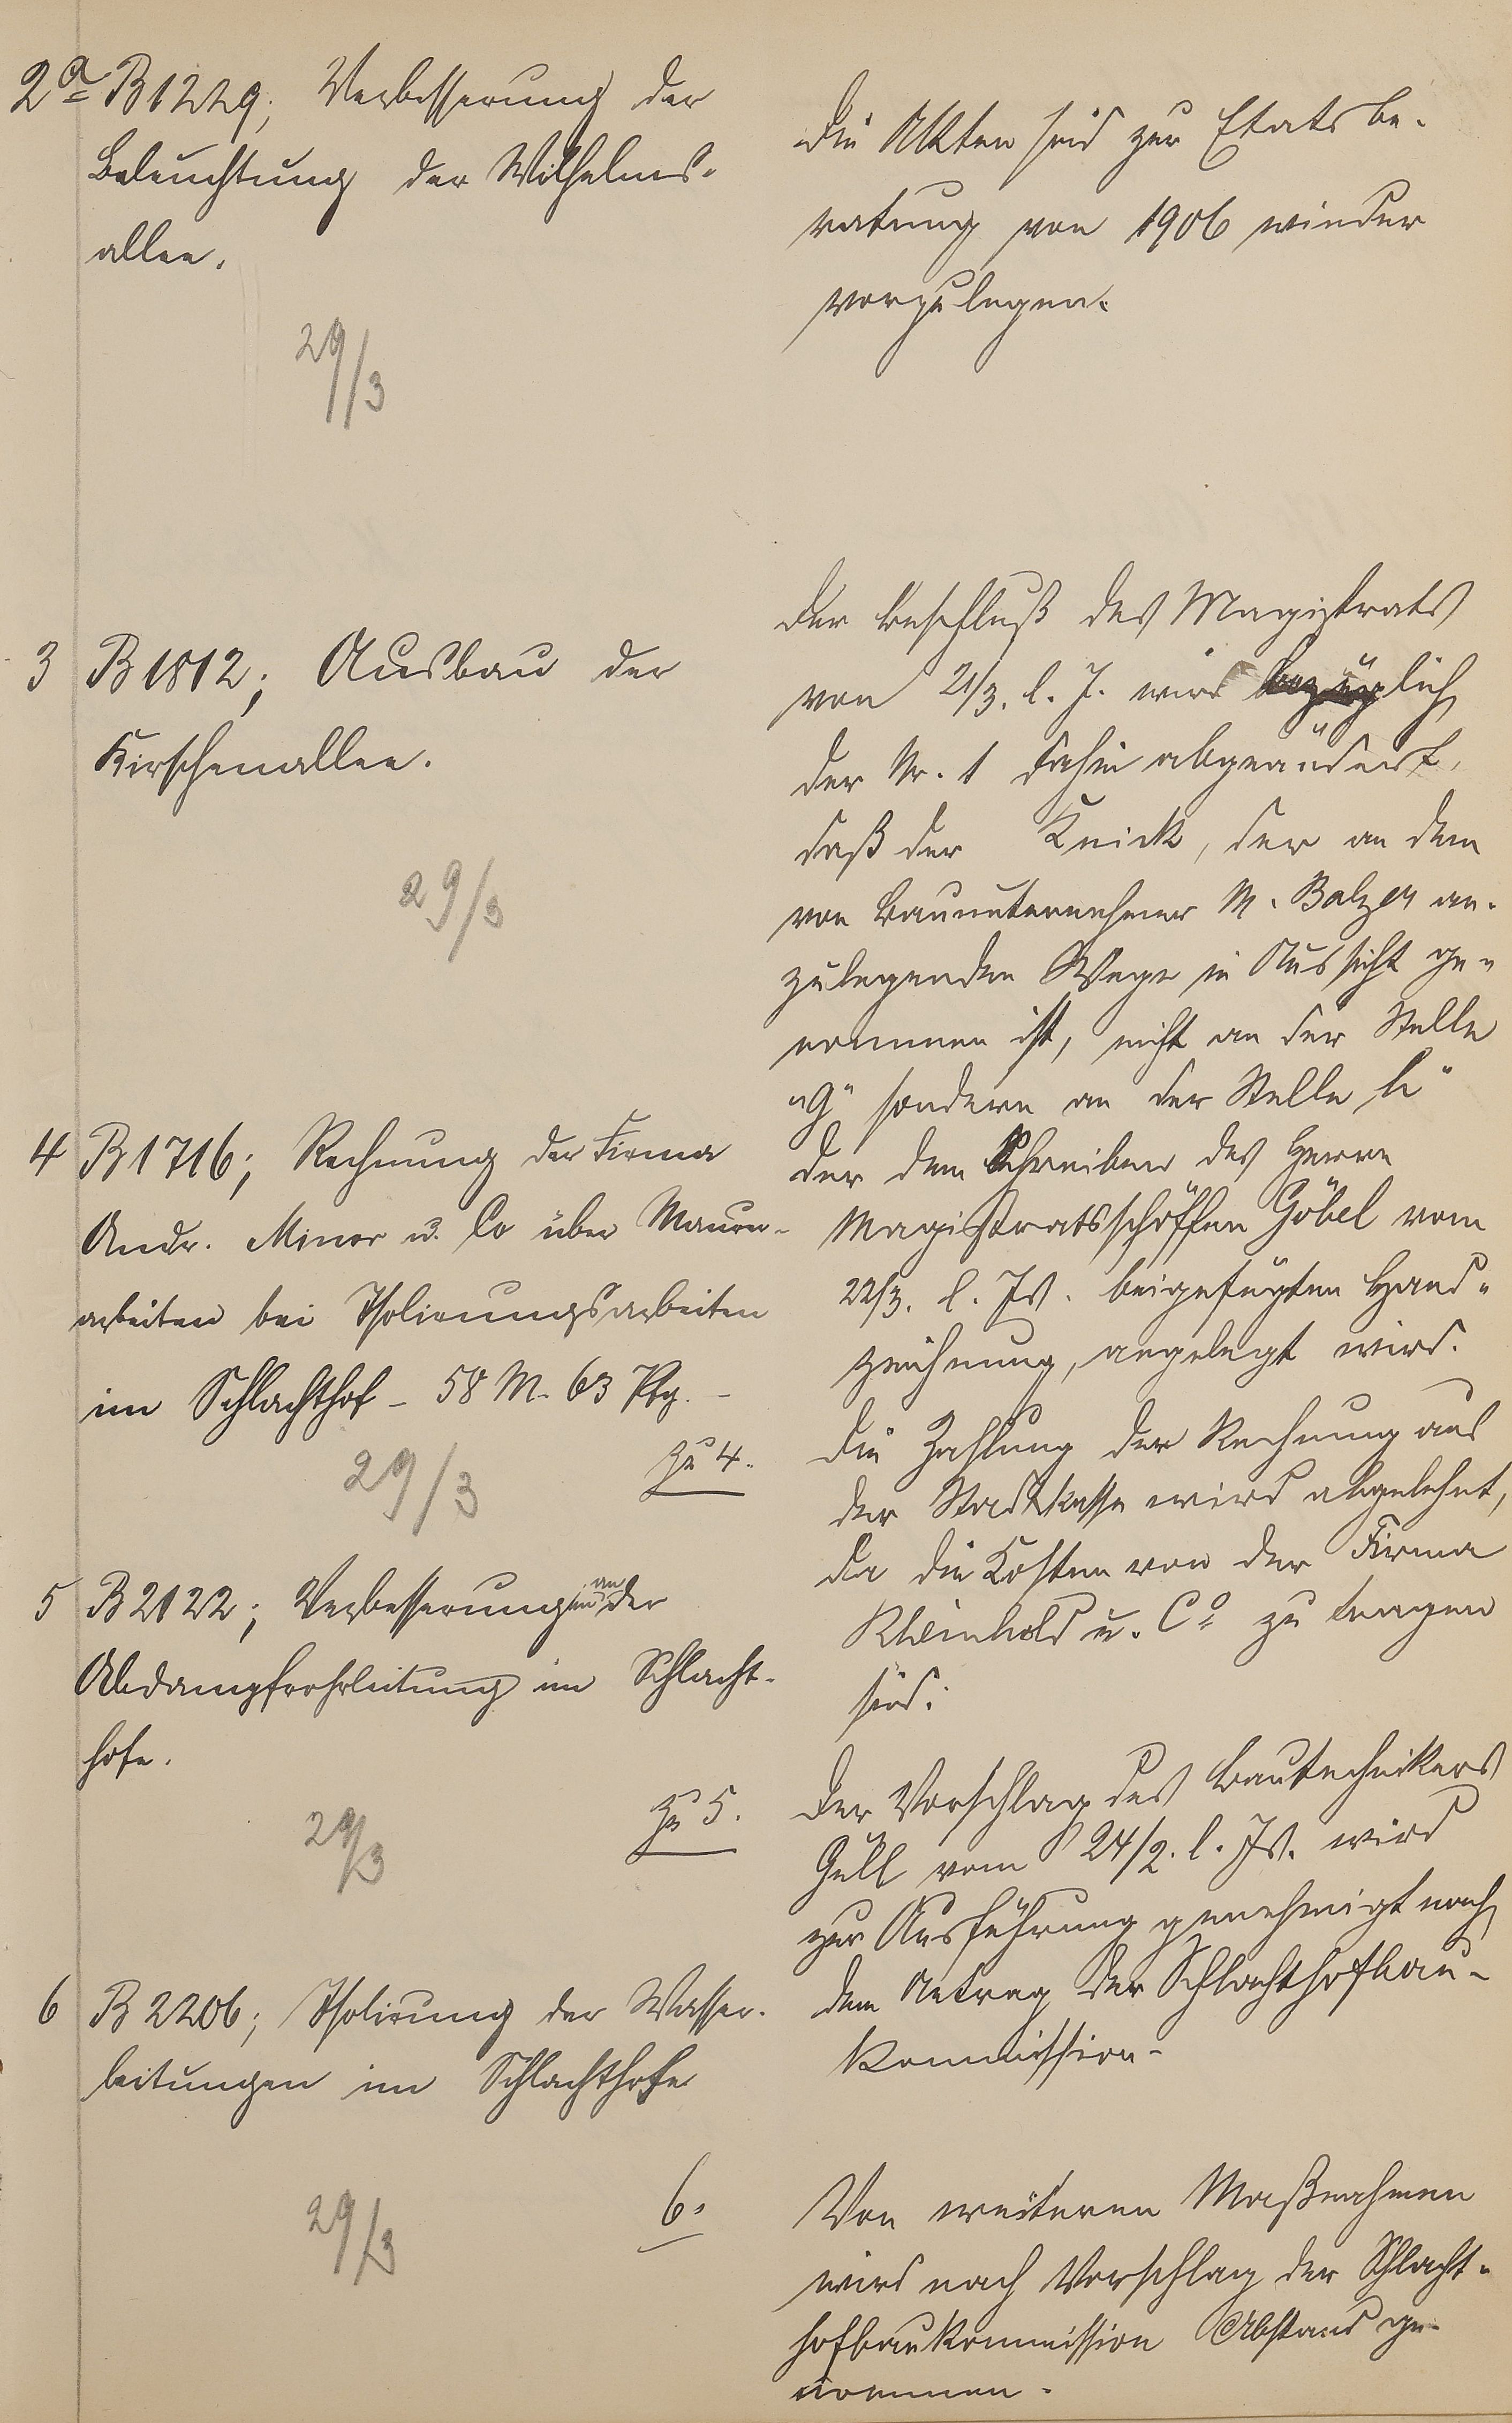 2a B 1229; Verbesserung der
Beleuchtung der Wilhelms-
allee.
29/3
Die Akten sind zur Etatsbe-
ratung von 1906 wieder
vorzulegen.
3 B 1812; Ausbau der
Kirschenallee.
29/3
Der Beschluß des Magistrats
von 21/3. l. J. wird bezüglich
der Nr. 1 dahin abgeändert,
daß der Knick, der an dem
von Bauunternehmer M. Balzer an-
zulegenden Wege in Aussicht ge-
nommen ist, nicht an der Stelle
"G" sondern an der Stelle "h"
der dem Schreiben des Herrn
Magistratsschöffen Göbel vom
22/3. l. Js. beigefügten Hand-
zeichnung, angelegt wird.
4 B 1716; Rechnung der Firma
Andr. Minor u. Co über Mauer-
arbeiten bei Isolierungsarbeiten
im Schlachthof - 58 M. 63 Pfg. -
29/3
Zu 4.
Die Zahlung der Rechnung aus
der Stadtkasse wird abgelehnt,
da die Kosten von der Firma
Rheinhold u. Co zu tragen
sind.
5 B 2122; Verbesserungen an der
Abdampfrohrleitung im Schlacht-
hofe.
29/3
Zu 5.
Der Vorschlag des Bautechnikers
Gull vom 24/2. l. Js. wird
zur Ausführung genehmigt nach
dem Antrag der Schlachthofbau-
kommission.
6 B 2206; Isolirung der Wasser-
leitungen im Schlachthofe
29/3
6.
Von weiteren Maßnahmen
wird nach Vorschlag der Schlacht-
hofbaukommission Abstand ge-
nommen.